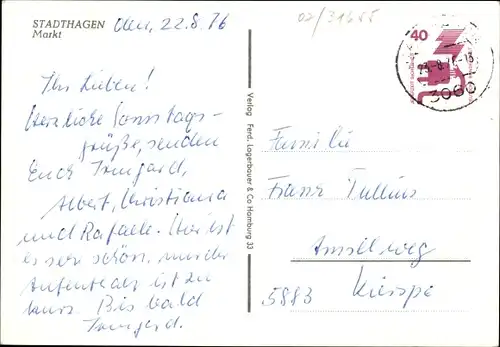 STADTHAGEN
Markt
den, 22.8.76
02/31655
Ihr Lieben!
Herzliche Sonntags-
grüße, senden
Euch Irmgard,
Albert, Christiana
und Rafaele. Hier ist
es ser schön, nur der
Aufenthalt ist zu
kurz. Bis bald
Irmgard.
Verlag Ferd. Lagerbauer & Co Hamburg 33
40
3060
Familie
Franz Tullius
Amselweg
5883 Kierspe